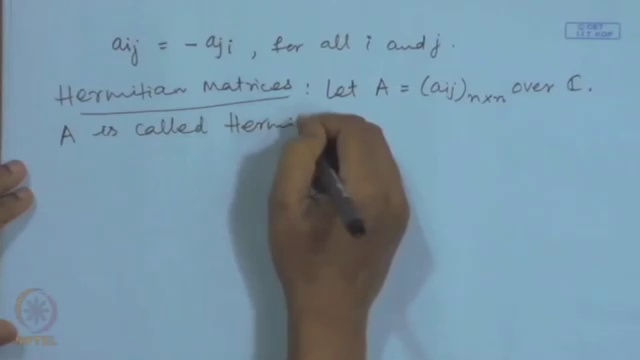 aij = - aji , for all i and j.
Hermitian Matrices : Let A = (aij)n×n over ℂ.
A is called Hermi
NPTEL